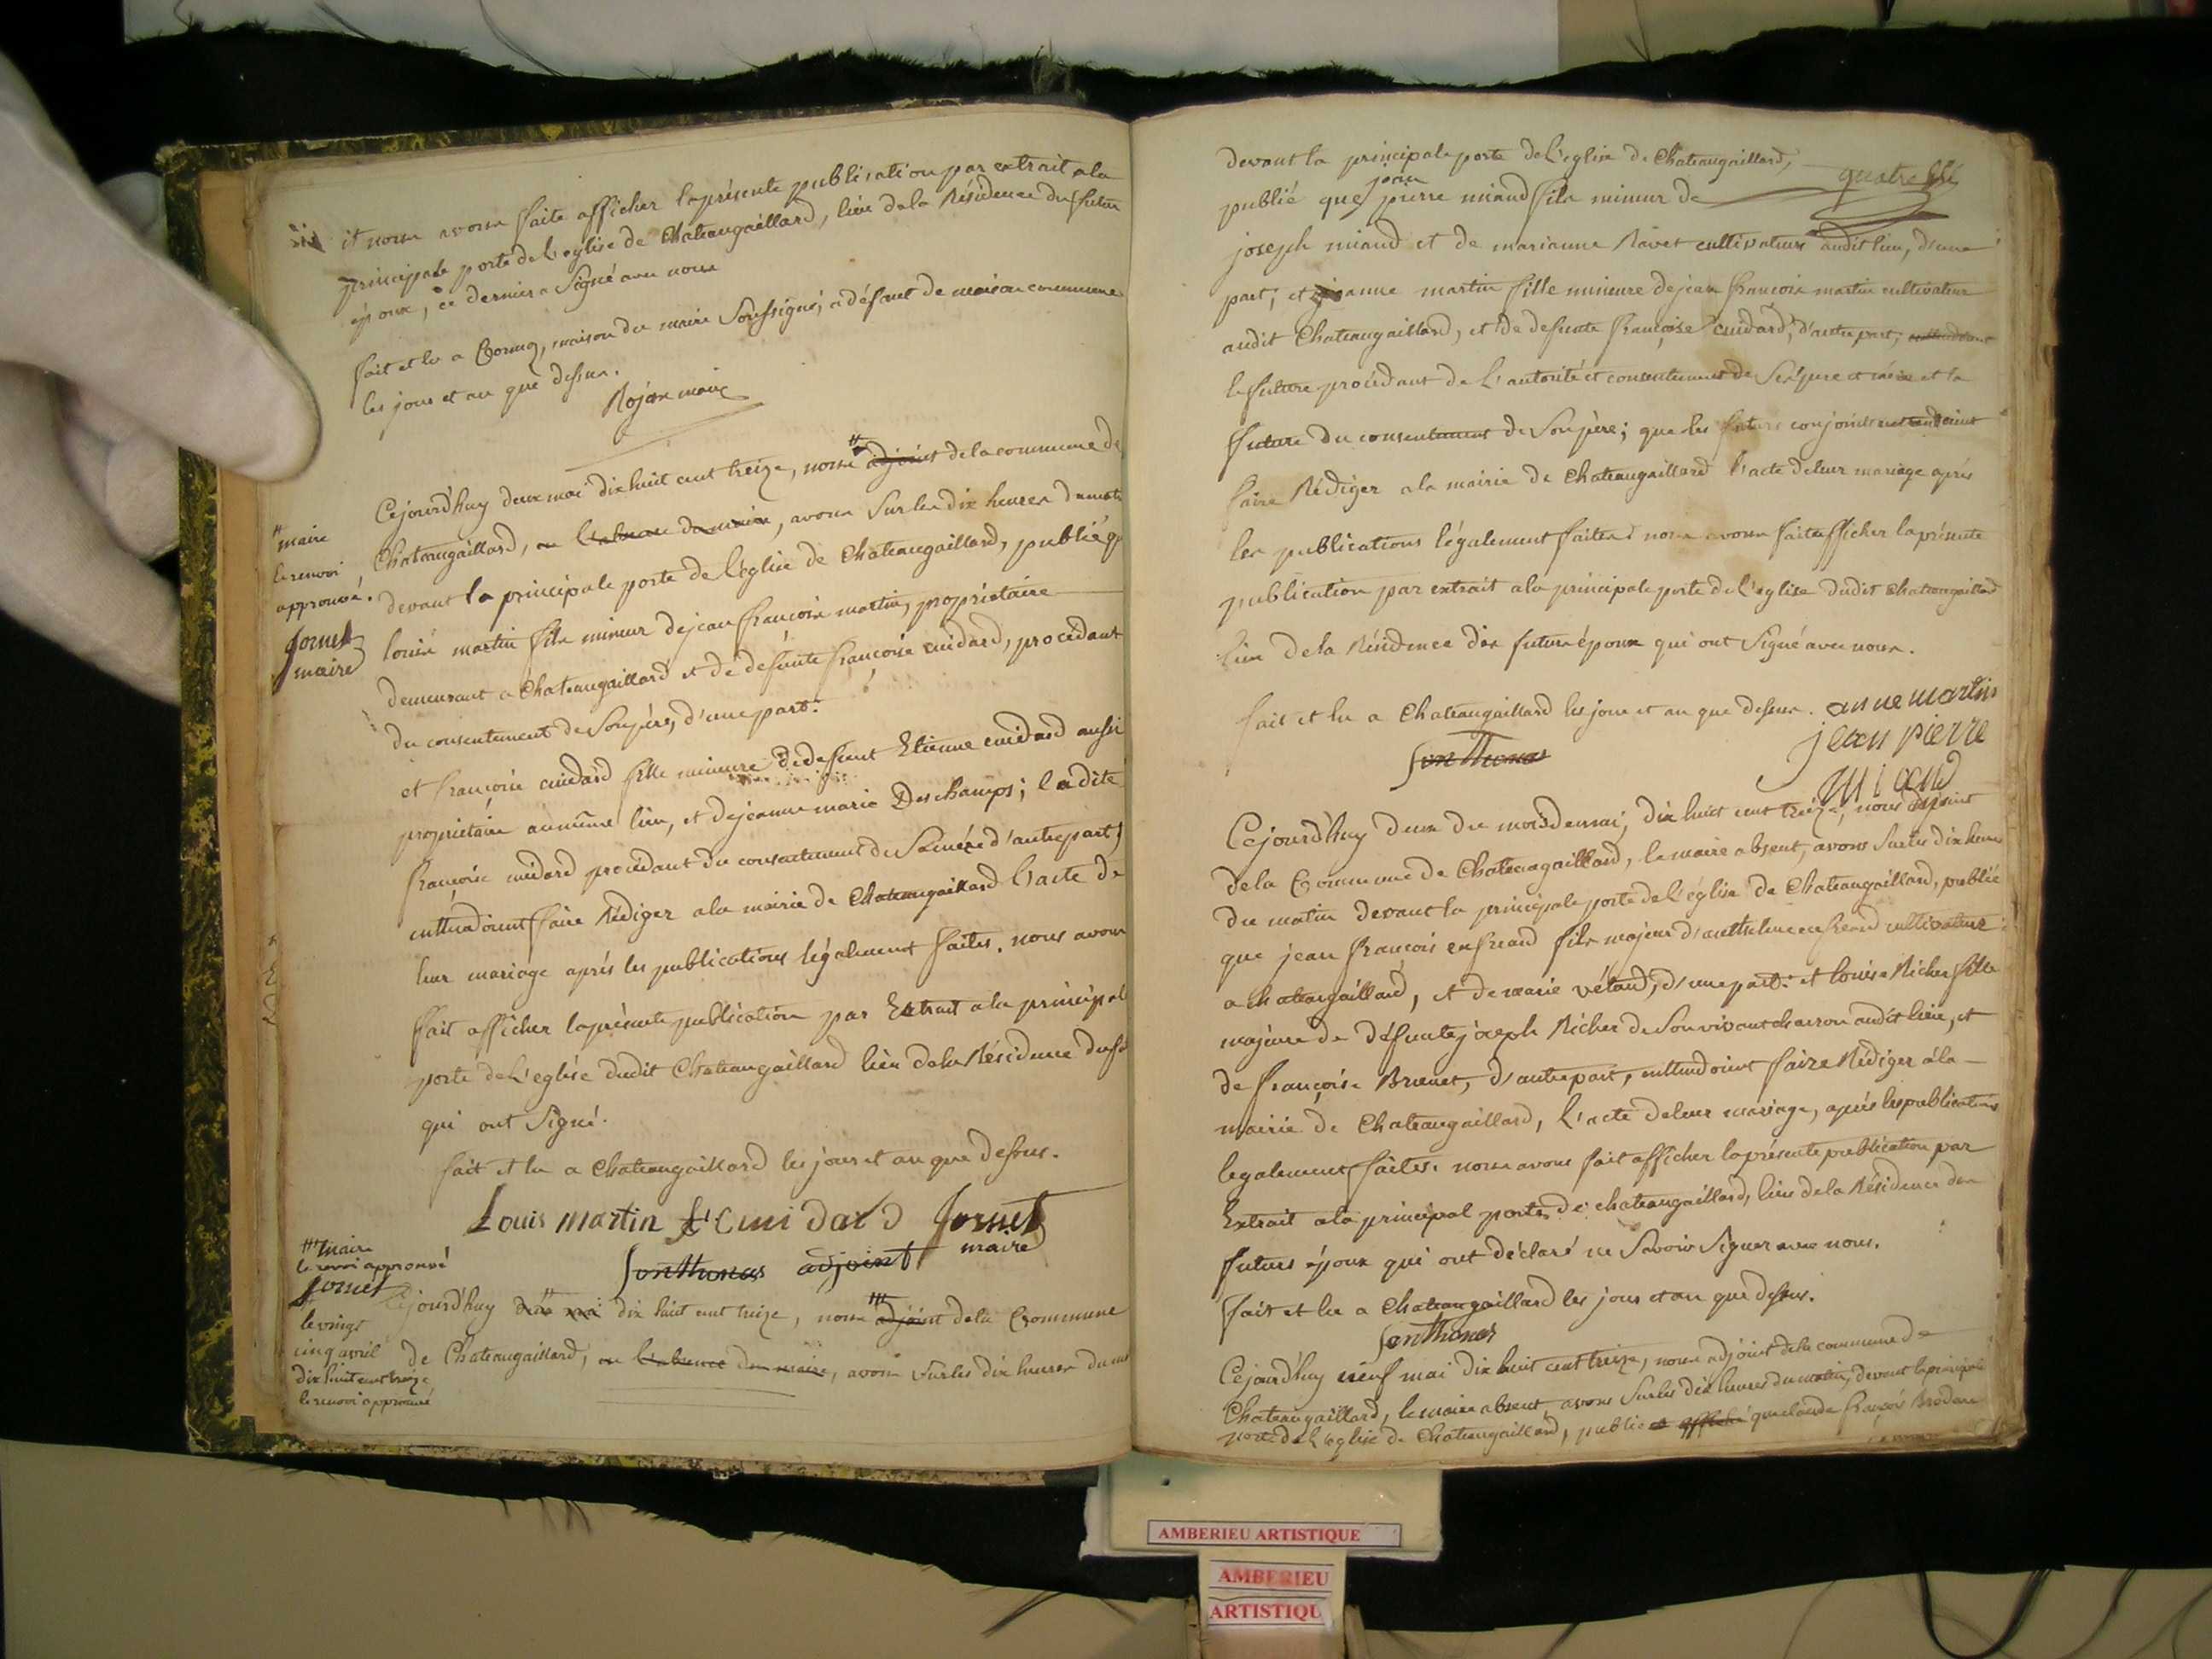 et nous avons faite afficher la présente publication par extrait a la
principale porte de l'eglise de Chateaugaillard, lieu de la Résidence du futur
époux, ce dernier a Signé avec nous
fait et lu a Cormoz, maison du maire Soussigné, a défaut de maison commune
les jour et an que dessus.
maire
Cejourd'huy deux mai dix huit cent treize, nous adjoint de la commune de
Chateaugaillard, en l'absence du maire, avons Sur les dix heures du
devant la principale porte de l'eglise de Chateaugaillard, publié
louis martin fils mineur de jean francois martin, propriétaire
demeurant a Chateaugaillard et de defunte francoise cuidard, procédant
du consentement de Son père, d'une part.
et francoise cuidard fille mineure de defunt Etienne cuidard aussi
propriétaire au même lieu, et de jeanne marie Deschamps; ladite
francoise cuidard procédant du consentement de Sa mère d'autre part
entendoient faire Rédiger a la mairie de Chateaugaillard l'acte de
leur mariage après les publications légalement faites. nous avons
fait afficher la présente publication par Extrait a la principale
porte de l'eglise dudit Chateaugaillard lieu de la Résidence
qui ont Signé.
fait et lu a Chateaugaillard les jour et an que dessus.
Louis martin f. Cuidard Jornet
maire
Sonthonas adjoint
Cejourd'huy deux mai dix huit cent treize, nous adjoint de la Commune
de Chateaugaillard, en l'absence du maire, avons Sur les dix heures du
maire
le renvoi
approuvé.
Jornet
maire
maire
le renvoi approuvé
Jornet
le vingt
cinq avril
dix huit cent treize
le renvoi approuvé
devant la principale porte de l'eglise de Chateaugaillard,
quatre
jean
publié que pierre miand fils mineur de
joseph miand et de marianne Ravet cultivateurs audit lieu, d'une
part; et anne martin fille mineure de jean francois martin cultivateur
audit Chateaugaillard, et de defunte francoise cuidard, d'autre part;
le future procédant de l'autorité et consentement de Ses père et mère et la
future du consentement de Son père; que les futurs conjoints entendoient
faire Rédiger a la mairie de Chateaugaillard l'acte de leur mariage après
les publications légalement faites nous avons faite afficher la présente
publication par extrait a la principale porte de l'eglise dudit Chateaugaillard
lieu de la Résidence des futurs époux qui ont Signé avec nous.
fait et lu a Chateaugaillard les jour et an que dessus. anne martin
jean pierre
miand
Sonthonas
Cejourd'huy deux du mois de mai, dix huit cent treize, nous adjoint
de la Commune de Chateaugaillard, le maire absent, avons Sur les dix heures
du matin devant la principale porte de l'église de Chateaugaillard, publié
que jean francois fils majeur d'anthelme cultivateur
a Chateaugaillard, et de marie vétard, d'une part: et louise Richer fille
majeure de défunt joseph Richer de Son vivant charron audit lieu, et
de françoise Brunet, d'autre part, entendoient faire Rédiger à la
mairie de Chateaugaillard, l'acte de leur mariage, après les publications
legalement faites. nous avons fait afficher la présente publication par
Extrait a la principal porte de chateaugaillard, lieu de la Résidence des
futurs époux qui ont déclaré ne Savoir Signer avec nous.
fait et lu a Chateaugaillard les jour et an que dessus.
Sonthonas
Cejourd'huy neuf mai dix huit cent treize, nous adjoint de la commune de
Chateaugaillard, le maire absent, avons Sur les dix heures du matin, devant la principale
porte de l'eglise de Chateaugaillard, publié et affiché que claude françois
AMBERIEU ARTISTIQUE
AMBERIEU
ARTISTIQU